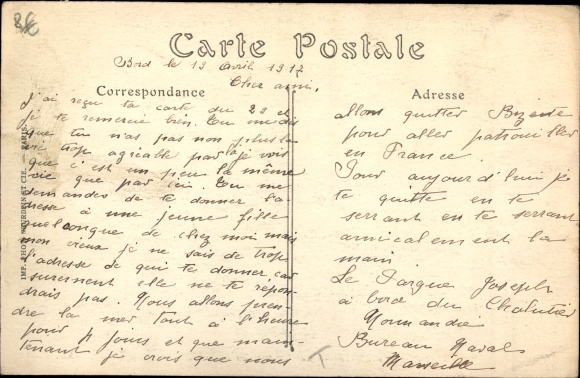 Carte Postale
Bord le 13 Avril 1917
Cher ami,
Correspondance
J'ai reçu ta carte du 23 et
je te remercie bien. Tu me dis
que tu n'as pas non plus la
vie trop agréable par là je vois
que c'est un peu la même
vie que par ici. Tu me
demandes de te donner l'a-
dresse à une jeune fille
quelconque de chez moi mais
mon vieux je ne sais de trop
l'adresse de qui te donner car
surement elle ne te répon-
drais pas. Nous allons pren-
dre la mer tout à l'heure
pour 4 jours et que main-
tenant je crois que nous
Adresse
allons quitter Bizerte
pour aller patrouiller
en France.
Pour aujourd'hui je
te quitte en te
serrant en te serrant
amicalement la
main
Le Pargue Joseph
à bord du Chalutier
Normandie
Bureau Naval
Marseille
IMP. PHOT. NEURDEIN ET CIE. — PARIS